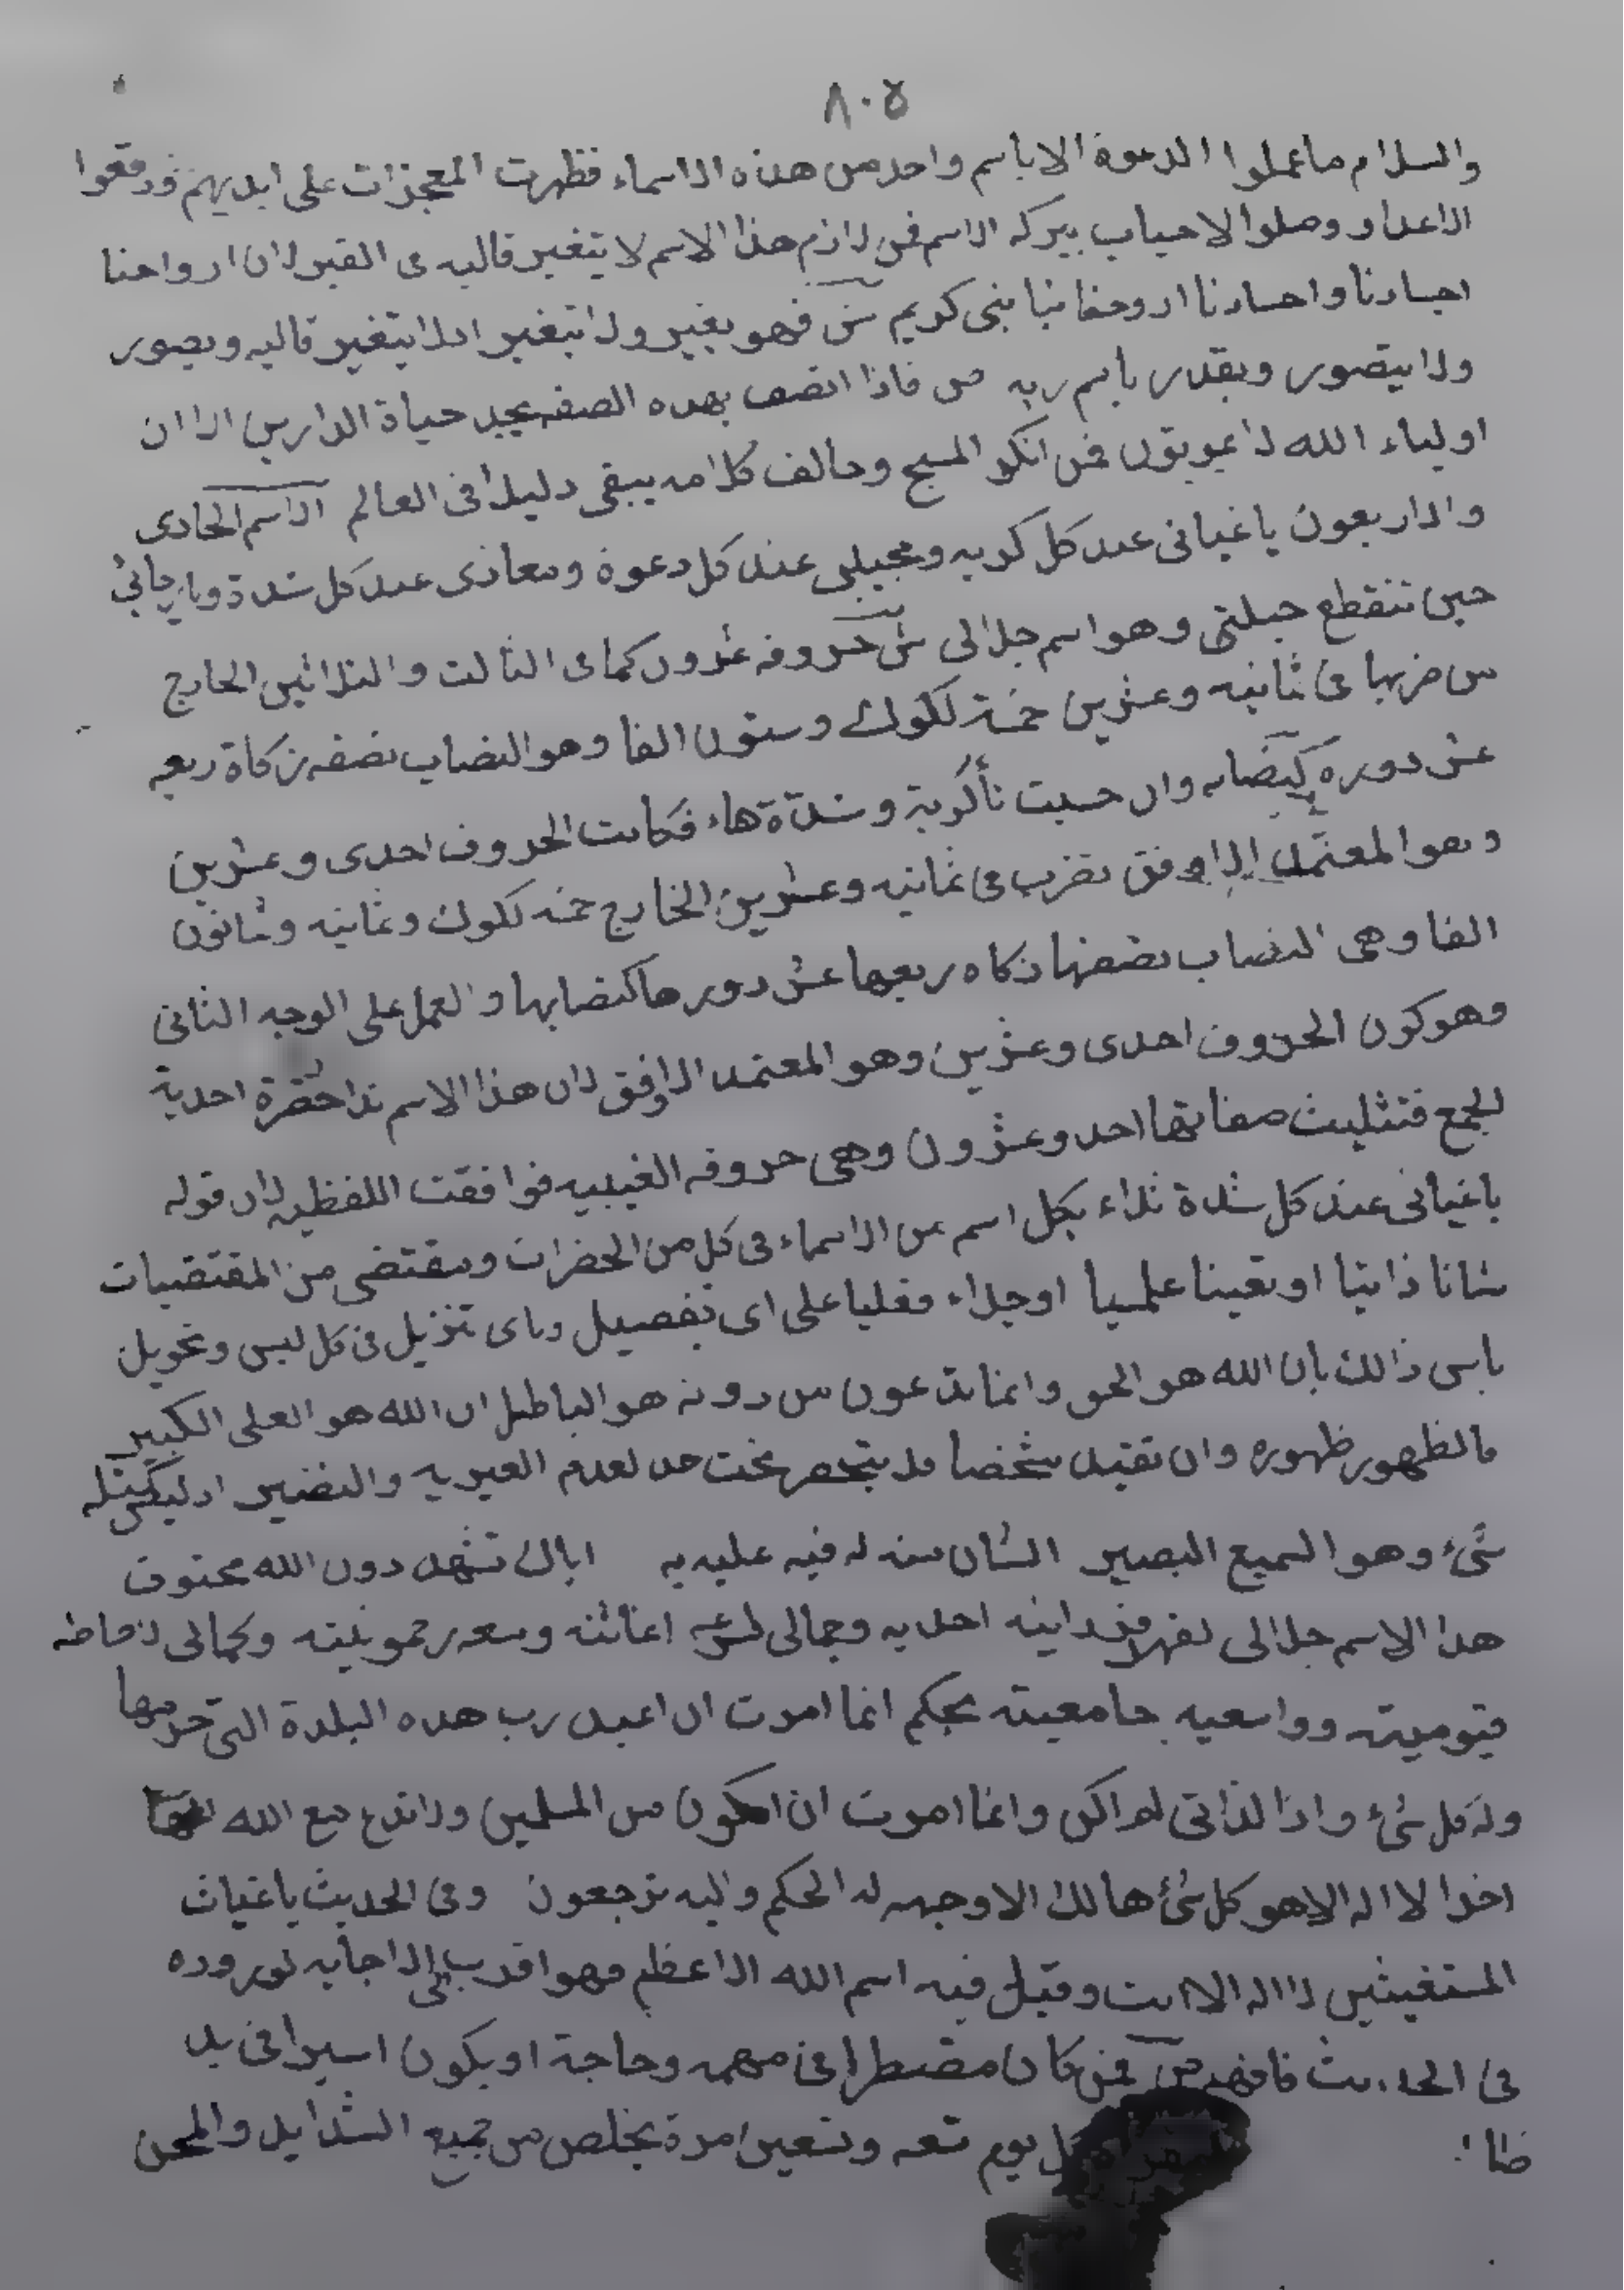 ٨٠٥
والسلام ما عملوا الدعوة الا باسم واحد من هذه الاسماء فظهرت المعجزات على ايديهم ودفعوا
الاعداء ووصلوا الاحباب ببركة الاسم فمن لازم هذا الاسم لا يتغير قالبه فى القبر لان ارواحنا
اجسادنا واجسادنا ارواحنا نبى كريم ش فهو يغير ولا يتغير اى لا يتغير قالبه ويصور
ولا يتصور ويقدر باسم ربه ص فاذا اتصف بهذه الصفه يجد حياة الدارين الا ان
اولياء الله لا يموتون فمن انكر المسيح وخالف كلامه يبقى دليلا فى العالم الاسم الحادى
والاربعون ياغياثى عند كل كربه ومجيبى عند كل دعوة ومعاذى عند كل شدة ويا رجائى
حين تنقطع حيلتى وهو اسم جلالى ش حروفه عشرون كما فى الثالث والثلاثين الخارج
من ضربها فى ثمانيه وعشرين خمسة لكوك وستون الفا وهو النصاب نصفه زكاة ربعه
عشر دوره كنصابه وان حسبت تاء كربة وشدة هاء فكانت الحروف احدى وعشرين
وهو المعتمد الاوفق تضرب فى ثمانيه وعشرين الخارج خمسه لكوك وثمانيه وثمانون
الفا وهى النصاب نصفها زكاه ربعها عشر دورها كنصابها والعمل على الوجه الثانى
وهو كون الحروف احدى وعشرين وهو المعتمد الاوفق لان هذا الاسم نداء حضرة احدية
الجمع فتثليث صفاتها احد وعشرون وهى حروفه الغيبيه فوافقت اللفظيه لان قوله
ياغياثى عند كل شدة نداء بكل اسم من الاسماء فى كل من الحضرات ومقتضى من المقتضيات
شانا ذاتيا او تعينا علميا او جلاء فعليا على اى تفصيل وباى تنزيل فى كل لبس وتحويل
يابى ذالك بان الله هو الحق وانما تدعون من دونه هو الباطل ان الله هو العلى الكبير
فالظهور ظهوره وان تقيد شخصا فلا ينحصر تحت حد لعدم الغيريه والنضير اذ ليس كمثله
شىء وهو السميع البصير الشان منه له فيه عليه به اياك تشهد دون الله محتوف
هذا الاسم جلالى لقهر فردانيه احديه وجمالى لسرعة اغاثته وسعه رحموتيته وكمالى لاحاطه
قيوميته وواسعيه جامعيته بحكم انما امرت ان اعبد رب هذه البلدة التى حرمها
وله كل شىء واذا لذاتى لم اكن وانما امرت ان اكون من المسلمين ولا تدع مع الله الها
اخر لا اله الا هو كل شىء هالك الا وجهه له الحكم واليه ترجعون وفى الحديث ياغياث
المستغيثين لا اله الا انت وقيل فيه اسم الله الاعظم فهو اقرب الى الاجابه لوروده
فى الحديث فافهم ص فمن كان مضطرا فى مهمه وحاجة او يكون اسيرا فى يد
كل يوم تسعه وتسعين امرة يخلص من جميع الشدايد والمحن